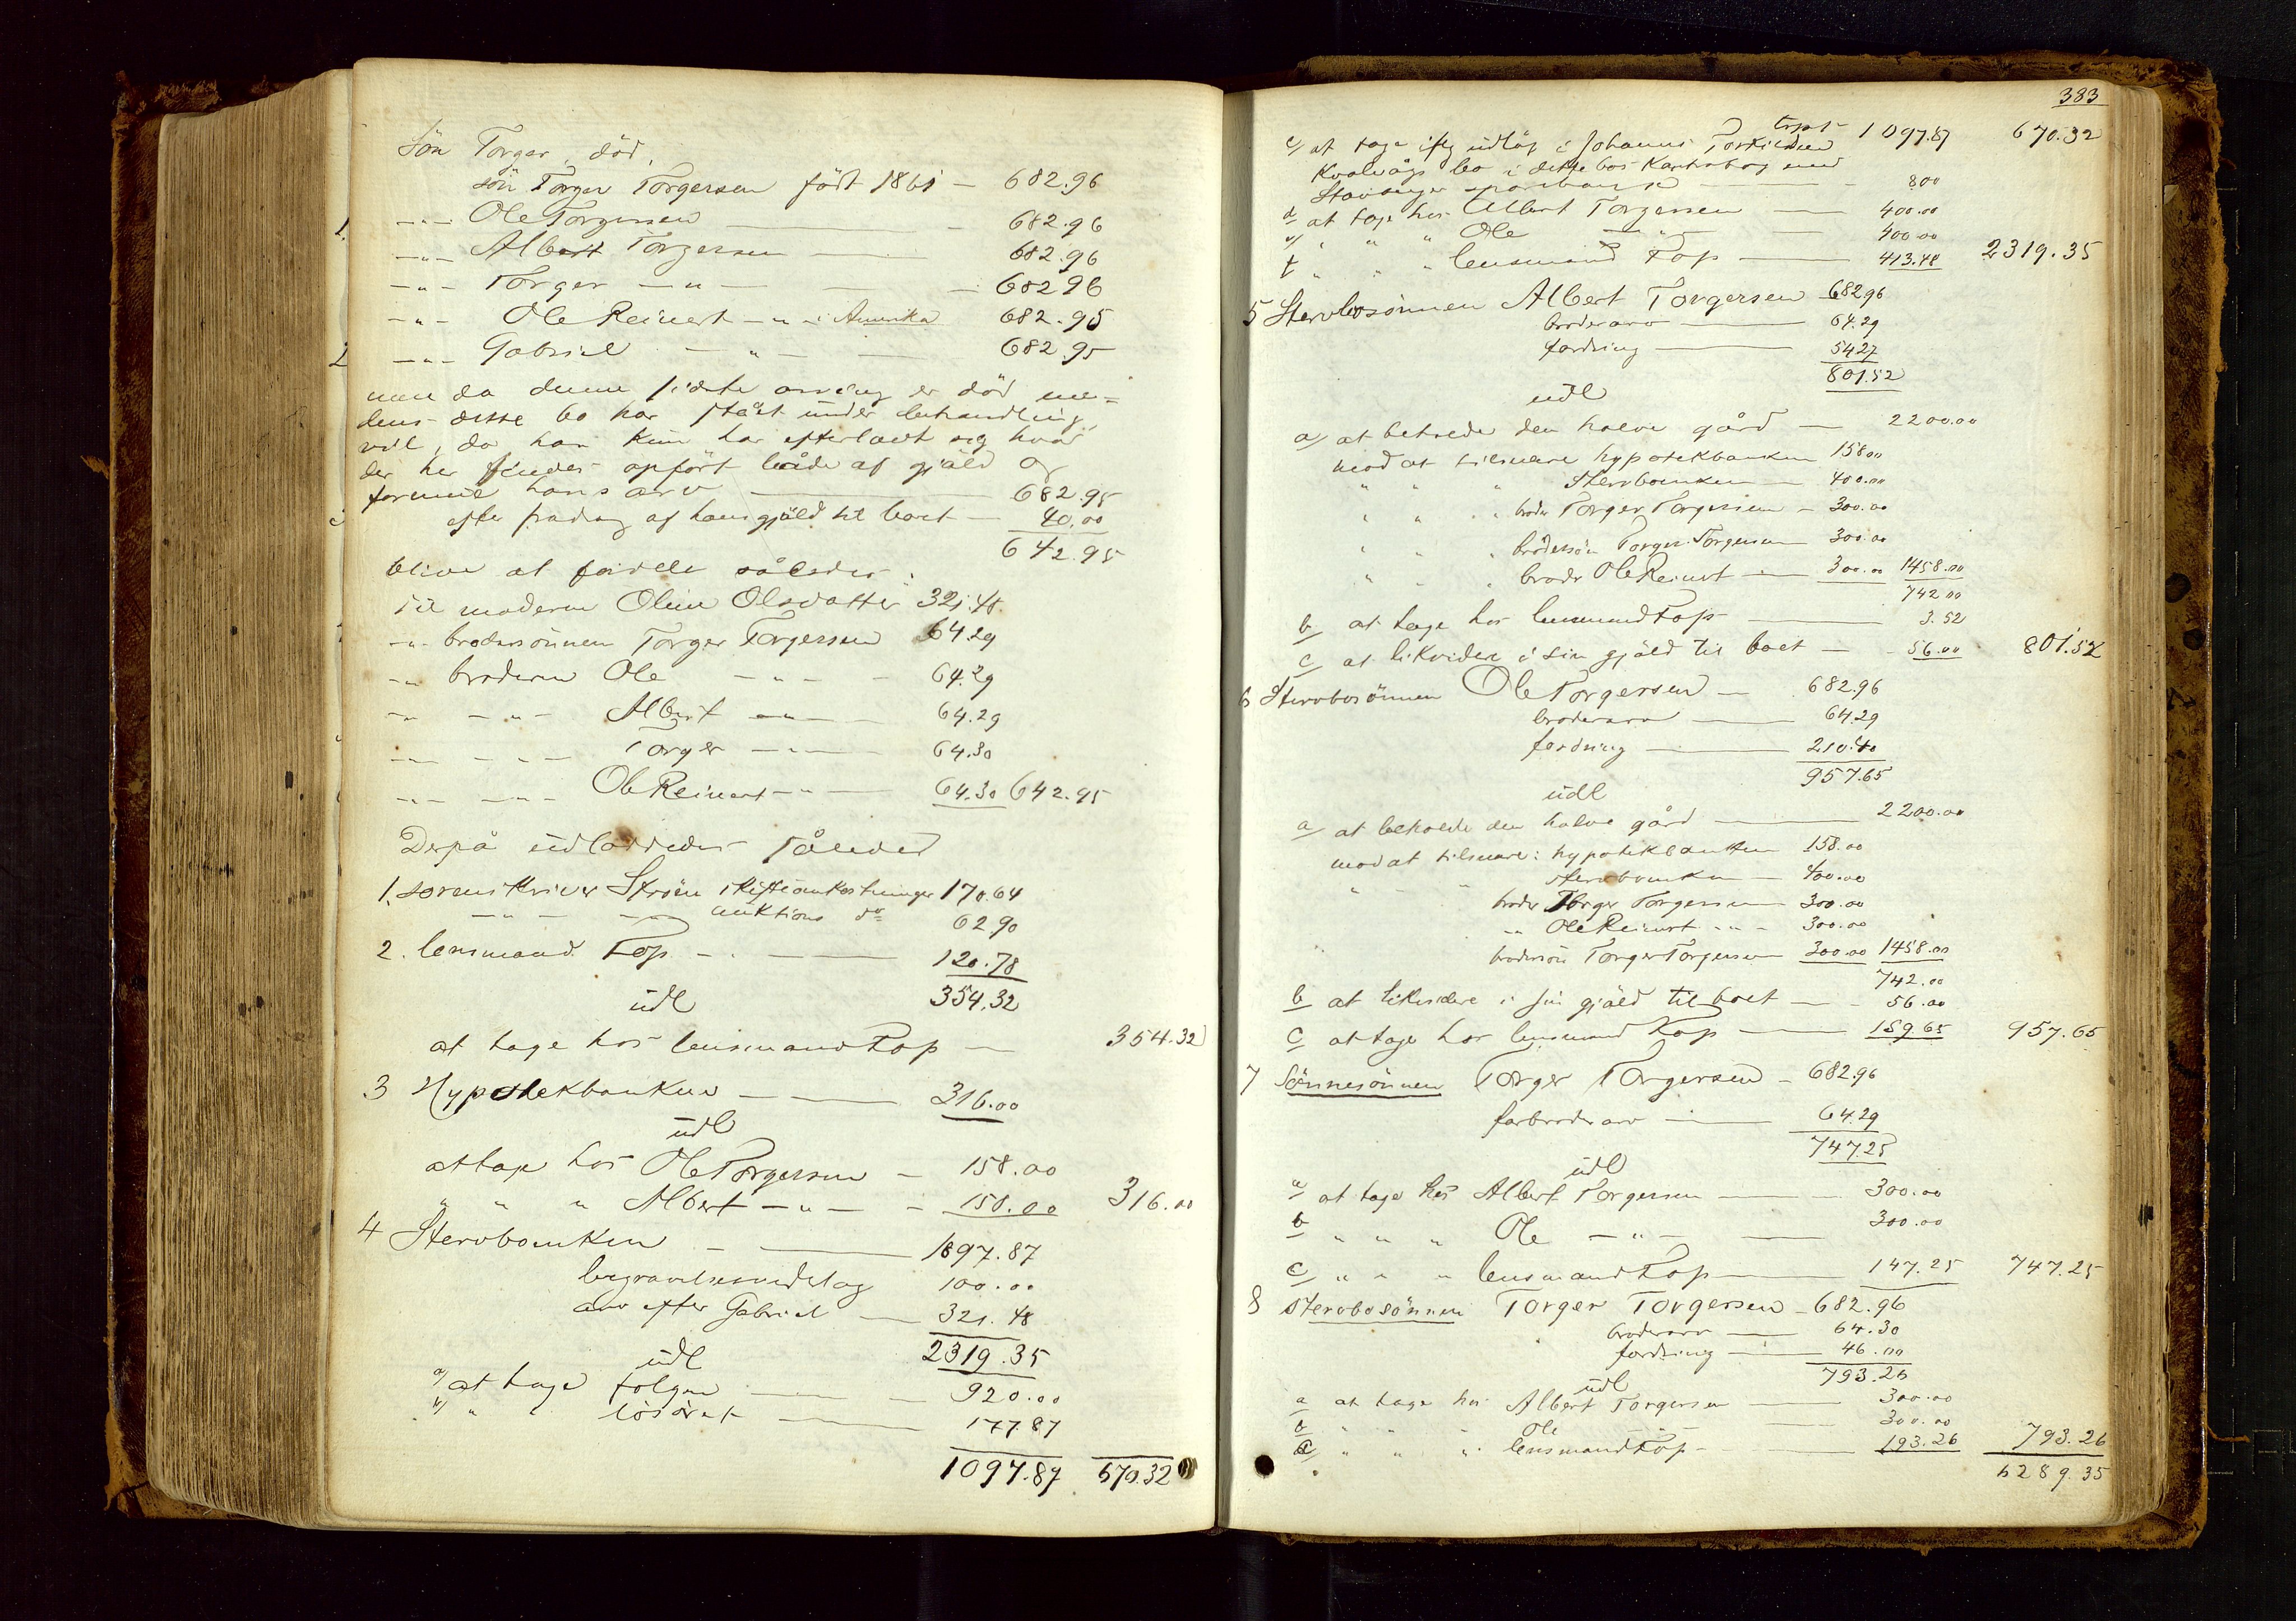 Sön Torger, död,
sön Torger Torgersen födt 1861 — 682.96
1. —"— Ole Torgersen — 682.96
—"— Albert Torgersen — 682.96
—"— Torger —"— — 682 96
—"— Ole Reinert —"— i Amerika 682.95
2 —"— Gabriel —"— 682.95
men da denne sidste arving er död me=
dens dette bo har stået under behandling,
vil, da han kun har efterladt sig hvad
der her findes opfört både af gjäld og
formue hans arv — 682.95
efter fradrag af hans gjäld til boet — 40.00
642.95
blive at fordele således:
Til moderen Oline Olsdatter 321.48
—"— brodersönnen Torger Torgersen 64.29
—"— broderen Ole —"— 64.29
—"— —"— Albert —"— 64.29
—"— —"— Torger —"— 64.30
—"— —"— Ole Reinert —"— 64.30 642.95
Derpå udloddedes således
1. sorenskriver Ström skifteomkostninger 170.64
—"— auktions do 62.90
2. lensmand Top —"— 120.78
354.32
udl
at tage hos lensmand Top — 354.32
3 Hypotekbanken — 316.00
udl
at tage hos Ole Torgersen — 158.00
" " " Albert —"— — 158.00 316.00
4 Stervboenken — 1897.87
begravelsesudlag 100.00
arv efter Gabriel — 321.48
2319.35
udl
a) at tage fölgen — 920.00
b) " " lösöret — 177.87
1097.87 670.32
383
trpt 1097.87 670.32
c) at tage iflg udlög i Johannes Torkildsen
Kvalvågs bo i dette bos Kontrabog med
Stavanger sparebank — 8.00
d at tage hos Albert Torgersen — 400.00
e) " " " Ole —"— — 400.00
f " " " lensmand Top — 413.48 2319.35
5 Stervbosönnen Albert Torgersen 682.96
broderarv — 64.29
fordring — 54.27
801.52
udl
a) at beholde den halve gård — 2200.00
mod at tilsvare hypotekbanken 158.00
" " " Stervboenken — 400.00
" " " broder Torger Torgersen — 300.00
" " " brodersön Torger Torgersen 300.00
" " " broder Ole Reinert — 300.00 1458.00
742 00
b at tage hos lensmand Top — 3.52
c at likvidere i sin gjäld til boet — 56.00 801.52
6 Stervbosönnen Ole Torgersen — 682.96
broderarv — 64.29
fordring — 210.40
957.65
udl
a) at beholde den halve gård — 2200.00
mod at tilsvare: hypotekbanken 158.00
" " " stervboenken — 400.00
broder Torger Torgersen 300.00
—"— Ole Reinert —"— 300.00
" brodersön Torger Torgersen 300.00 1458.00
742.00
b at likvidere i sin gjäld til boet — 56.00
c at tage hos lensmand Top — 159.65 957.65
7 Sönnesönnen Torger Torgersen — 682.96
farbroderarv — 64.29
747.25
udl
a) at tage hos Albert Torgersen — 300.00
b " " " Ole —"— — 300.00
c) " " " lensmand Top — 147.25 747.25
8 Stervbosönnen Torger Torgersen — 682.96
broderarv — 64.30
fordring — 46.00
793.26
udl
a at tage hos Albert Torgersen — 300.00
b " " " Ole —"— — 300.00
c) " " " lensmand Top — 193.26 793.26
6289.35